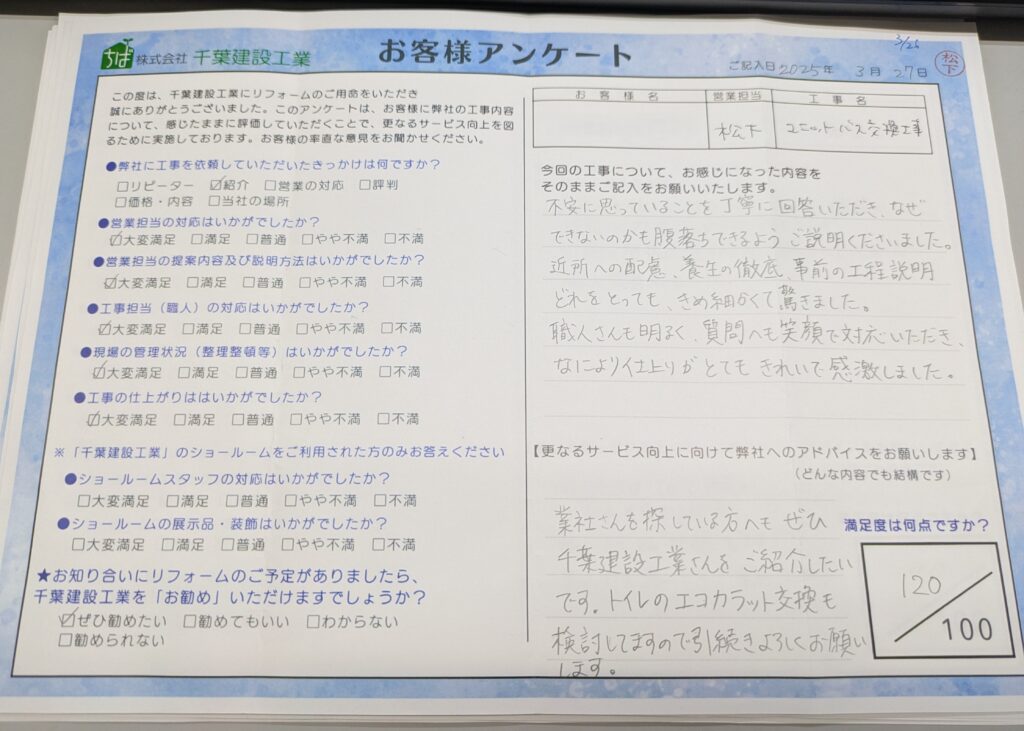 ちば 株式会社 千葉建設工業
お客様アンケート
3/26
ご記入日 2025年 3月 27日
松下
この度は、千葉建設工業にリフォームのご用命をいただき
誠にありがとうございました。このアンケートは、お客様に弊社の工事内容
について、感じたままに評価していただくことで、更なるサービス向上を図
るために実施しております。お客様の率直な意見をお聞かせください。
●弊社に工事を依頼していただいたきっかけは何ですか?
□リピーター ☑紹介 □営業の対応 □評判
□価格・内容 □当社の場所
●営業担当の対応はいかがでしたか?
☑大変満足 □満足 □普通 □やや不満 □不満
●営業担当の提案内容及び説明方法はいかがでしたか?
☑大変満足 □満足 □普通 □やや不満 □不満
●工事担当(職人)の対応はいかがでしたか?
☑大変満足 □満足 □普通 □やや不満 □不満
●現場の管理状況(整理整頓等)はいかがでしたか?
☑大変満足 □満足 □普通 □やや不満 □不満
●工事の仕上がりははいかがでしたか?
☑大変満足 □満足 □普通 □やや不満 □不満
※「千葉建設工業」のショールームをご利用された方のみお答えください
●ショールームスタッフの対応はいかがでしたか?
□大変満足 □満足 □普通 □やや不満 □不満
●ショールームの展示品・装飾はいかがでしたか?
□大変満足 □満足 □普通 □やや不満 □不満
★お知り合いにリフォームのご予定がありましたら、
千葉建設工業を「お勧め」いただけますでしょうか?
☑ぜひ勧めたい □勧めてもいい □わからない
□勧められない
お客様名 営業担当 工事名
松下 ユニットバス交換工事
今回の工事について、お感じになった内容を
そのままご記入をお願いいたします。
不安に思っていることを丁寧に回答いただき、なぜ
できないのかも腹落ちできるようご説明くださいました。
近所への配慮、養生の徹底、事前の工程説明
どれをとっても、きめ細かくて驚きました。
職人さんも明るく、質問へも笑顔で対応いただき、
なにより仕上りがとてもきれいで感激しました。
【更なるサービス向上に向けて弊社へのアドバイスをお願いします】
(どんな内容でも結構です)
業社さんを探している方へもぜひ
千葉建設工業さんをご紹介したい
です。トイレのエコカラット交換も
検討してますので引続きよろしくお願い
します。
満足度は何点ですか?
120/100